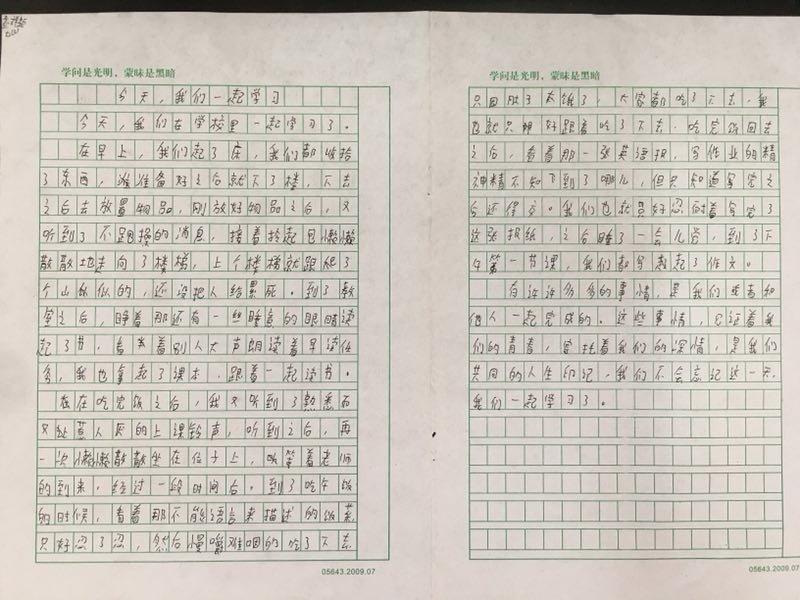 学问是光明，蒙昧是黑暗
今天，我们一起学习
今天，我们在学校里一起学习了。
在早上，我们起了床，我们都收拾
了东西，准备好之后就下了楼，下去
之后去放置物品，刚放好物品之后，又
听到了不跑操的消息，接着拎起包懒懒
散散地走向了楼梯，上个楼梯就跟爬了
个山似似的，还没把人给累死。到了教
室之后，睁着那还有一丝睡意的眼睛读
起了书，看着别人大声朗读着早读任
务，我也拿起了课本，跟着一起读书。
在吃完饭之后，我又听到了熟悉而
又惹人厌的上课铃声，听到之后，再
一次懒懒散散坐在位子上，等着老师
的到来，经过一段时间后，到了吃午饭
的时候，看着那不能语言来描述的饭菜
只好忍了忍，然后慢嚼难咽的吃了下去
05643.2009.07
学问是光明，蒙昧是黑暗
只因肚子太饿了，大家都吃了下去，我
也就只好跟着吃了下去。吃完饭回去
之后，看着那一张英语报，写作业的精
神不知飞到了哪儿，但只知道写完之
后还得交。我们也就只好忍耐着写完了
这张报纸，之后睡了一会儿觉，到了下
午第一节课，我们都写起了作文。
有许许多多的事情，是我们或者和
他人一起完成的。这些事情，见证着我
们的青春，牵扯着我们的深情，是我们
共同的人生印记，我们不会忘记这一天，
我们一起学习了。
05643.2009.07